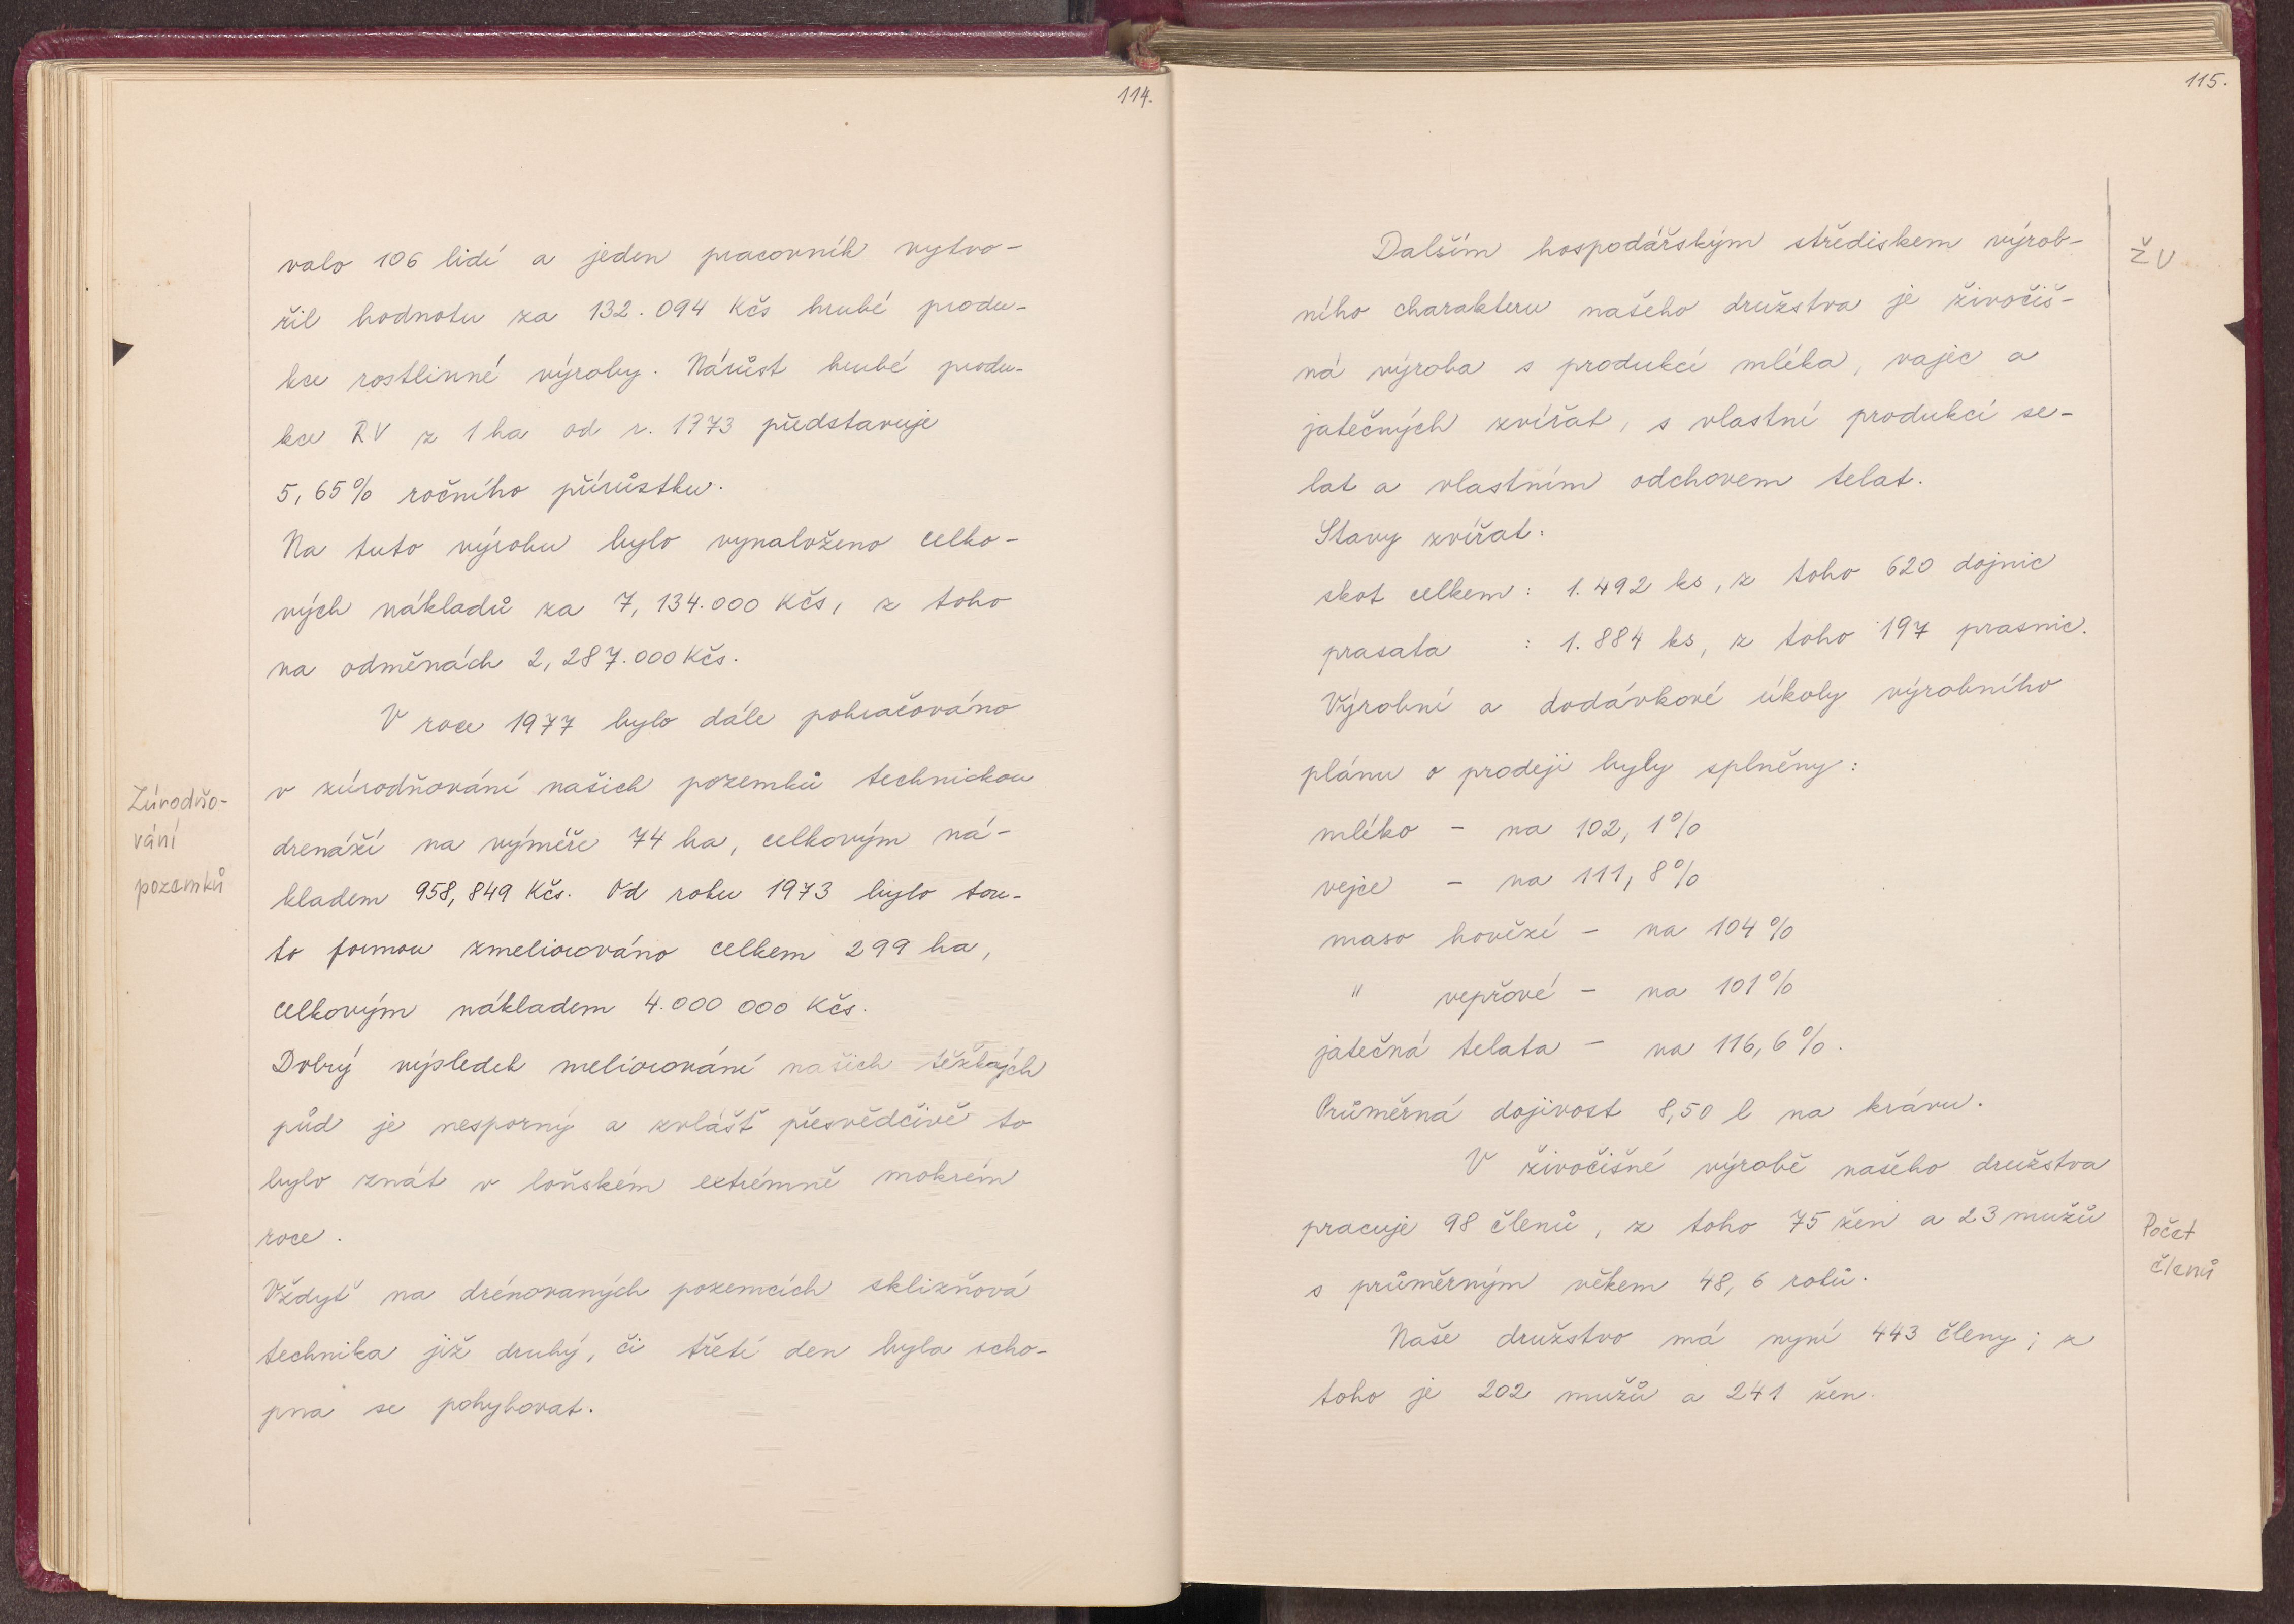 114.
valo 106 lidí a jeden pracovník vytvo-
řil hodnotu za 132.094 Kčs hrubé produ-
kce rostlinné výroby. Nárůst hrubé produ-
kce RV z 1 ha od r. 1973 představuje
5,65% ročního přírůstku.
Na tuto výrobu bylo vynaloženo celko-
vých nákladů za 7,134.000 Kčs, z toho
na odměnách 2,287.000 Kčs.
V roce 1977 bylo dále pokračováno
v zúrodňování našich pozemků technickou
drenáží na výměře 74 ha, celkovým ná-
kladem 958,849 Kčs. Od roku 1973 bylo tou-
to formou zmeliorováno celkem 299 ha,
celkovým nákladem 4.000 000 Kčs.
Dobrý výsledek meliorování našich těžkých
půd je nesporný a zvlášť přesvědčivě to
bylo znát v loňském extrémně mokrém
roce.
Vždyť na drénovaných pozemcích sklizňová
technika již druhý, či třetí den byla scho-
pna se pohybovat.
Zúrodňo-
vání
pozemků
115.
Dalším hospodářským střediskem výrob-
ního charakteru našeho družstva je živočiš-
ná výroba s produkcí mléka, vajec a
jatečných zvířat, s vlastní produkcí se-
lat a vlastním odchovem telat.
Stavy zvířat:
skot celkem: 1.492 ks, z toho 620 dojnic
prasata : 1.884 ks, z toho 197 prasnic.
Výrobní a dodávkové úkoly výrobního
plánu o prodeji byly splněny:
mléko - na 102,1%
vejce - na 111,8%
maso hovězí - na 104%
" vepřové - na 101%
jatečná telata - na 116,6%.
Průměrná dojivost 8,50 l na krávu.
V živočišné výrobě našeho družstva
pracuje 98 členů, z toho 75 žen a 23 mužů
s průměrným věkem 48,6 roků.
Naše družstvo má nyní 443 členy; z
toho je 202 mužů a 241 žen.
ŽV
Počet
členů